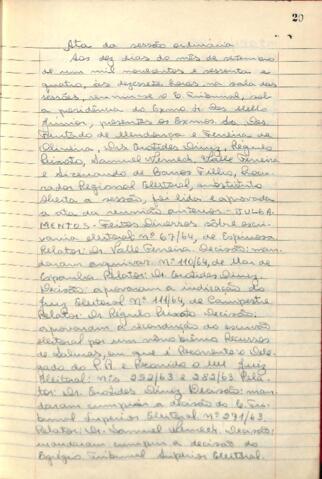 20
Ata da sessão ordinária
Aos dez dias do mês de setembro
de um mil novecentos e sessenta e
quatro, às dezessete horas, na sala das
sessões, reuniu-se o Tribunal, sob
a presidência do Exmo Sr Des Mello
Junior, presentes os Exmos Srs Des
Furtado de Mendonça e Ferreira de
Oliveira, Drs Orotides Diniz, Regulo
Peixoto, Samuel Werneck, Valle Ferreira
e Sizenando de Barros Filho, Procu-
rador Regional Eleitoral,
aberta a sessão, foi lida e aprovada
a ata da reunião anterior. JULGA-
MENTOS - Feitos Diversos sôbre escri-
vania eleitoral nº 67/64, de Espinosa
Relator: Dr. Valle Ferreira. Decisão: man-
daram arquivar. Nº 110/64, de Mar de
Espanha Relator: Dr. Orotides Diniz.
Decisão: aprovaram a indicação do
Juiz Eleitoral Nº 111/64, de Campestre
Relator: Dr Regulo Peixoto Decisão:
aprovaram a recondução do escrivão
eleitoral por um novo biênio Recursos
de Lavras, em que é Recorrente o Dele-
gado do P.R. e Recorrido o MM Juiz
Eleitoral: nºs 252/63 e 282/63 Rela-
tor: Dr. Orotides Diniz Decisão: man-
daram cumprir a decisão do E. Tri-
bunal Superior Eleitoral Nº 271/63.
Relator: Dr. Samuel Werneck. Decisão:
mandaram cumprir a decisão do
Egrégio Tribunal Superior Eleitoral.